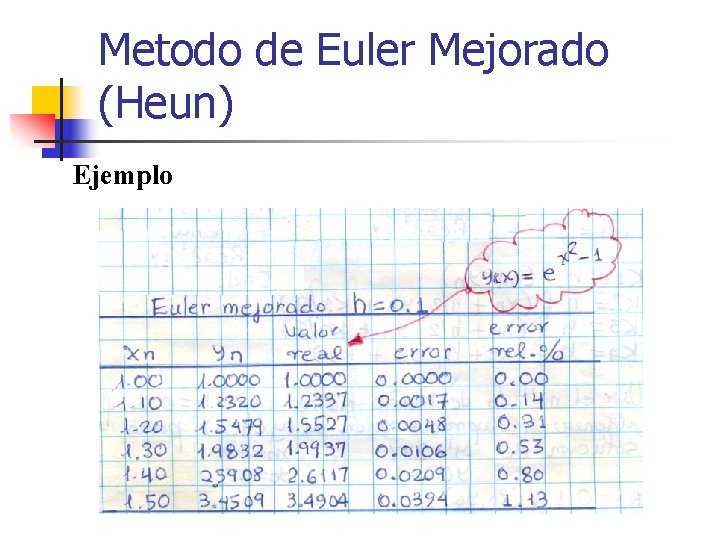 Metodo de Euler Mejorado
(Heun)
Ejemplo
y(x) = e^x²-1
Euler mejorado h = 0.1
Xn Yn Valor real error error rel.%
1.00 1.0000 1.0000 0.0000 0.00
1.10 1.2320 1.2337 0.0017 0.14
1.20 1.5479 1.5527 0.0048 0.31
1.30 1.9832 1.9937 0.0106 0.53
1.40 2.5908 2.6117 0.0209 0.80
1.50 3.4509 3.4904 0.0394 1.13